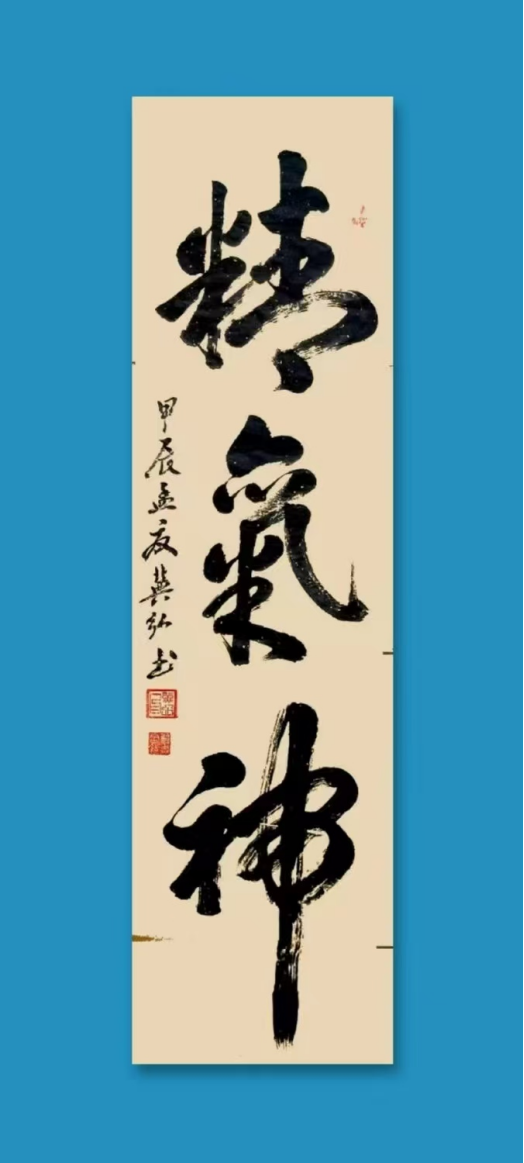 精氣神
甲辰孟夏龔弘书